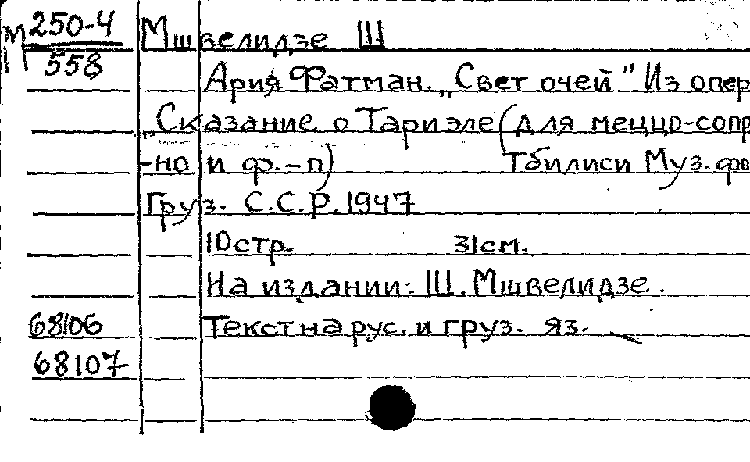 М 250-4 Мшвелидзе Ш
П 558
Ария Фатман. „Свет очей" Из опер
„Сказание о Тариэле (для меццо-сопр
-но и ф.-п) Тбилиси Муз. фо
Груз. С.С.Р. 1947
10 стр. 31см.
На издании: Ш. Мшвелидзе.
68106 Текст на рус. и груз. яз.
68107